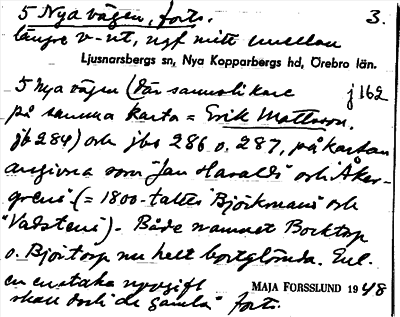 5 Nya vägen, forts. 3.
längre v-ut, ngf mitt emellan
Ljusnarsbergs sn, Nya Kopparbergs hd, Örebro län.
5 Nya vägen (där sannolikare j 162
på samma karta = Erik Mattsson.
jb 284) och jbr 286 o. 287, på kartan
angivna som "Jan Haralds" och "Åker-
grens" (= 1800-talets "Björkmans" och
"Vadstens"). Både namnet Bocktorp
o. Björtorp nu helt bortglömda. Enl.
en enstaka uppgift
skall dock "de gamla" forts.
MAJA FORSSLUND 1948